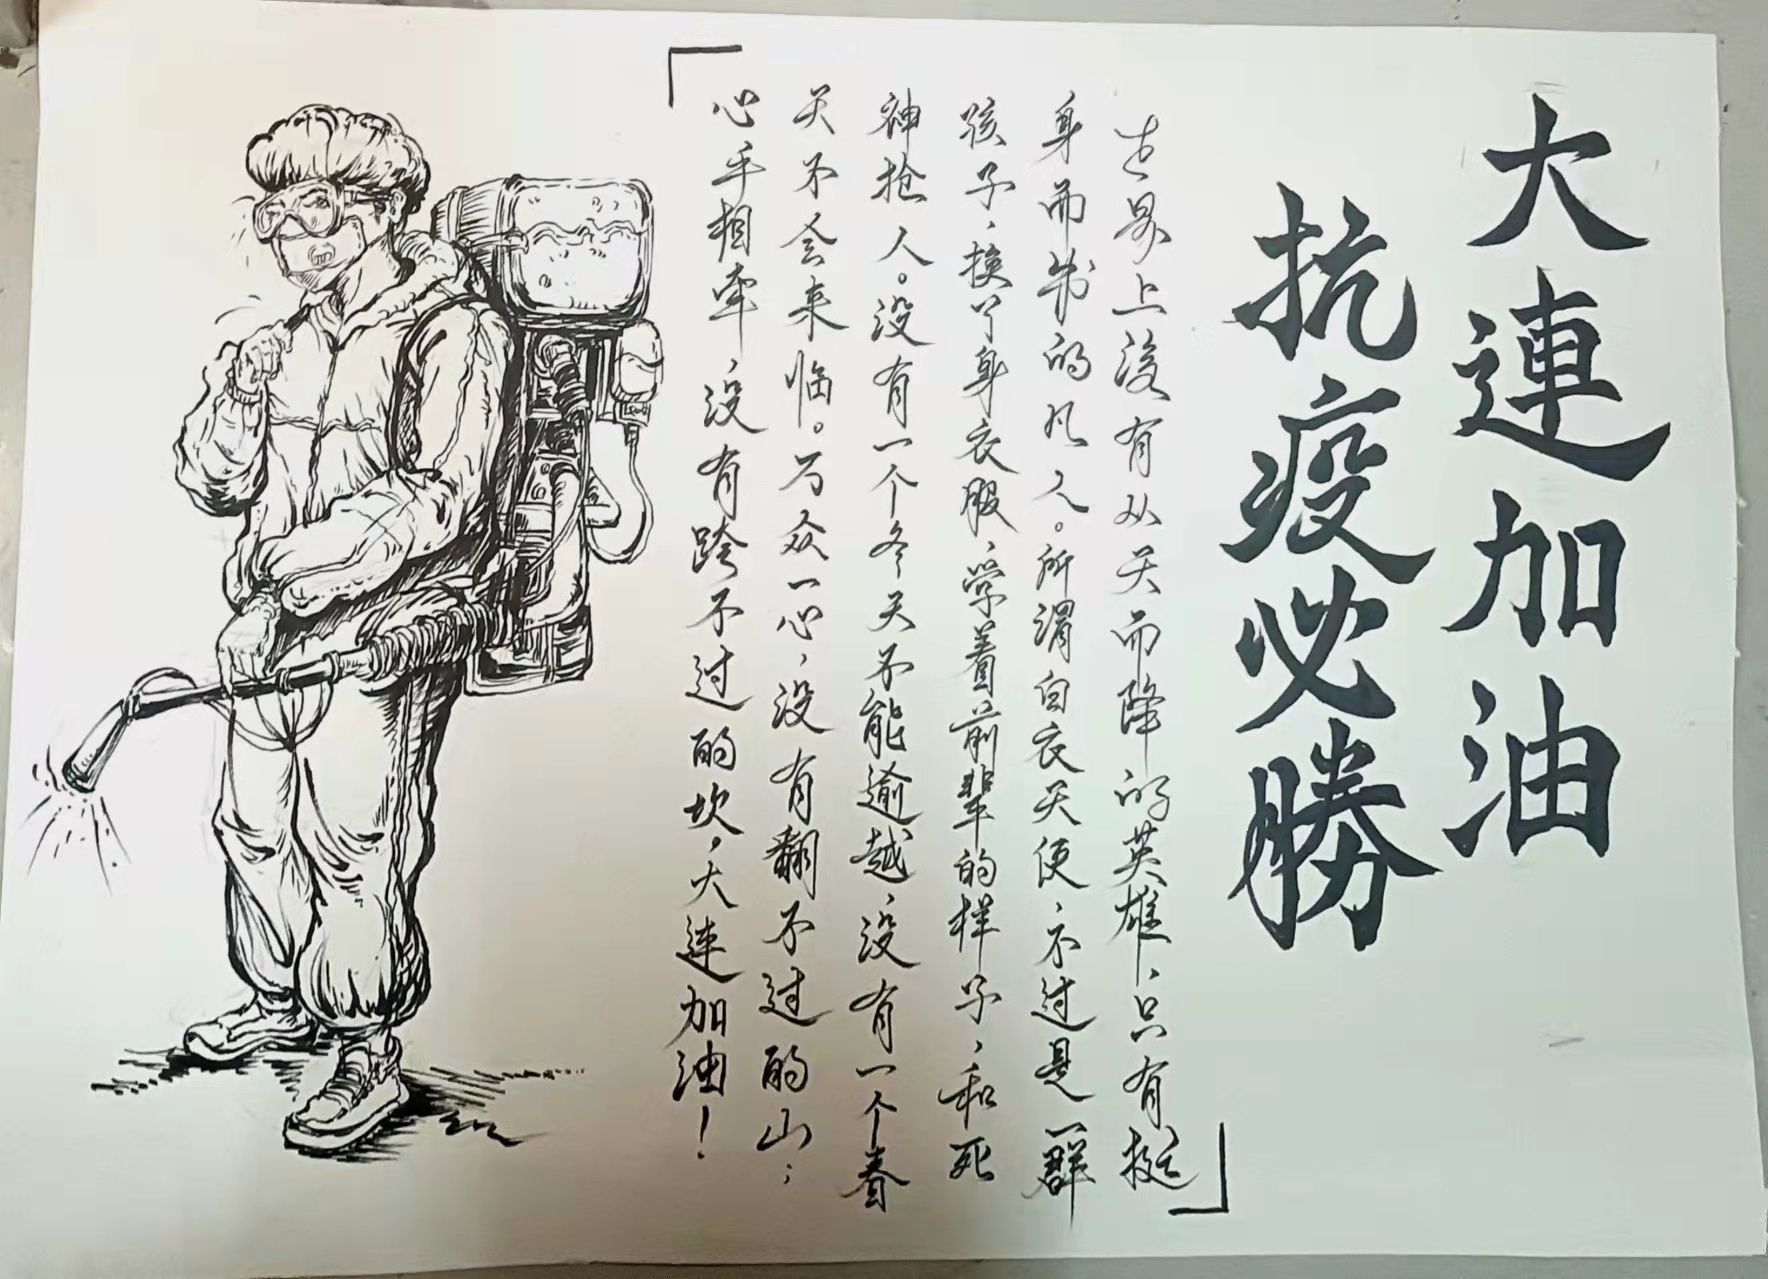 大連加油
抗疫必勝
世界上没有从天而降的英雄，只有挺
身而出的凡人。所谓白衣天使，不过是一群
孩子，换了身衣服，学着前辈的样子，和死
神抢人。没有一个冬天不能逾越，没有一个春
天不会来临。万众一心，没有翻不过的山；
心手相牵，没有跨不过的坎。大连加油！